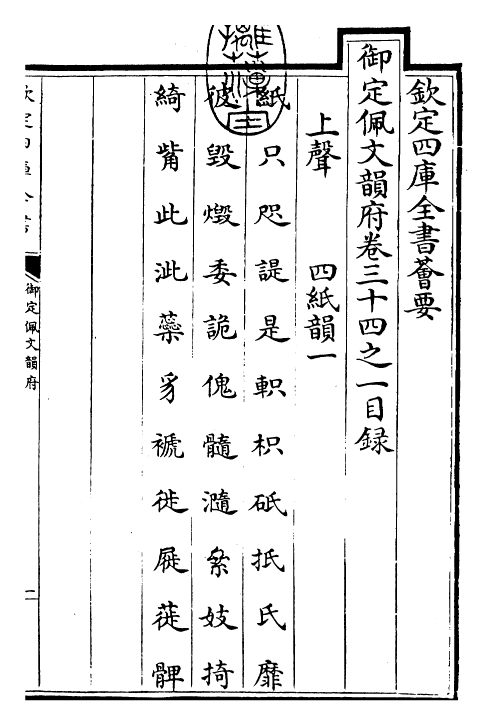 欽定四庫全書薈要
御定佩文韻府卷三十四之一目録
上聲 四紙韻一
紙只咫諟是軹枳砥抵氏靡
彼毀燬委詭傀髓瀡絫妓掎
綺觜此泚蘂豸褫徙屣蓰髀
御定佩文韻府